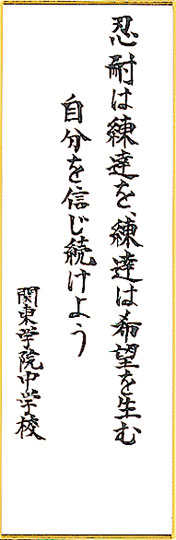 忍耐は練達を、練達は希望を生む
自分を信じ続けよう
関東学院中学校